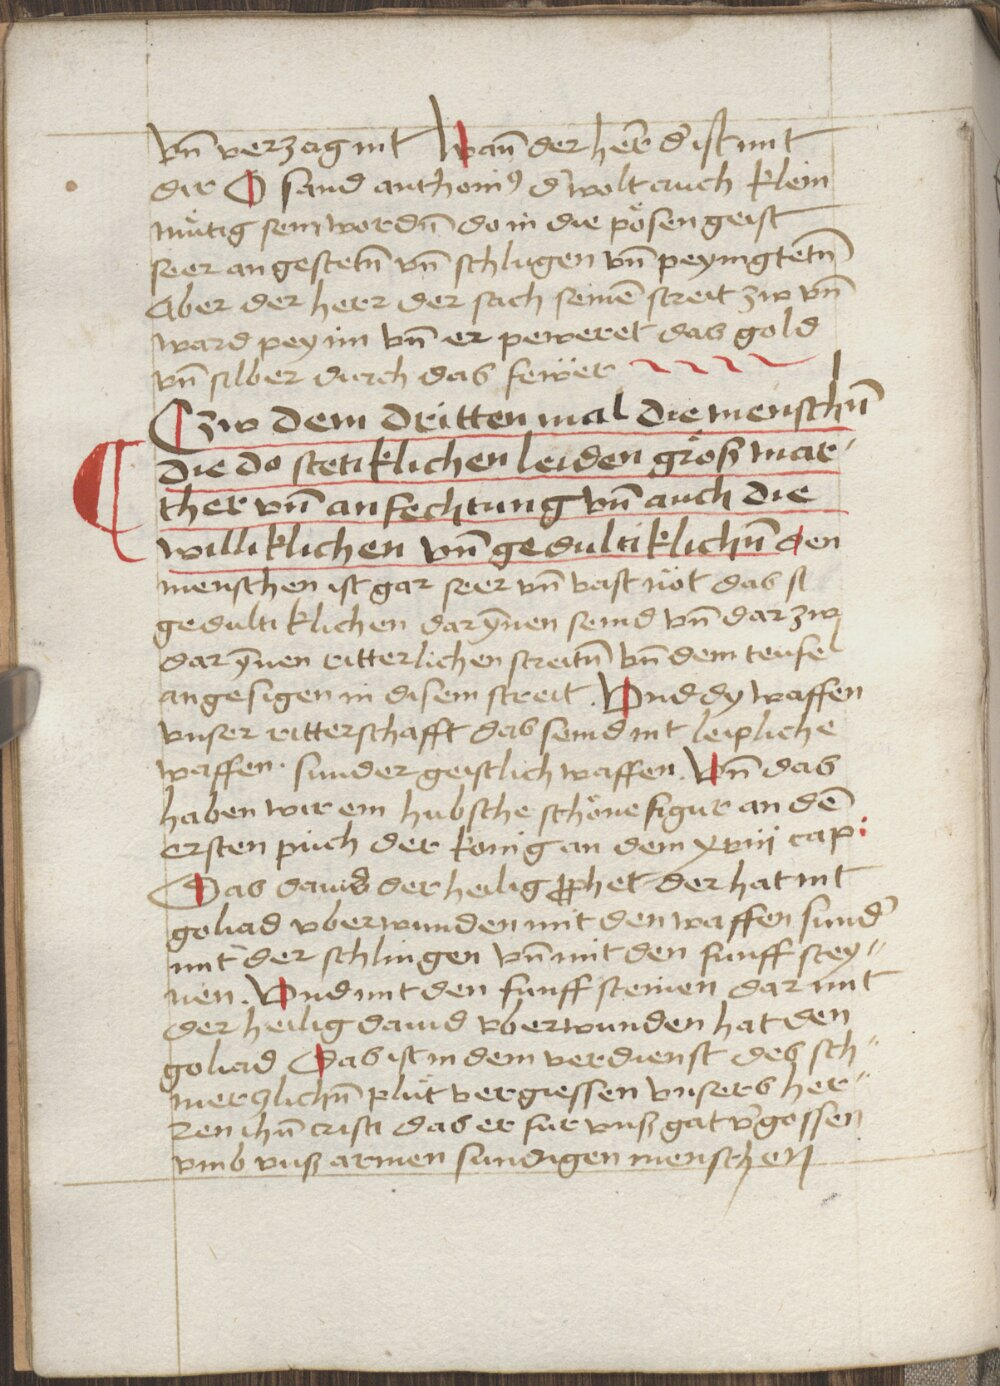 vn̄ verzag nit Wan̄ der her̄ d' ist mit
dir O sand anthoni9 d' wolt auch klein
mu̇tig sein wordn̄ do in die pösen geist
seer an gesstetn̄ vn̄ schlugen vn̄ peyingtetn̄
Aber der herr der sach seinē streit zw vn̄
ward pey im vn̄ er peweret das gold
vn̄ silber durch das fewer
Czw dem dritten mal die menschn̄
die do stetiklichen leiden grös mar-
ther vn̄ anfechtung vn̄ auch die
williklichen vn̄ gedultiklichn̄ den
menschen ist gar seer vn̄ vast nöt das si
gedultiklichen darȳnen seind vn̄ dar zw
dar ȳnnen ritterlichen streitn̄ vn̄ dem teufel
angesigen in disem streit. Vnd dy waffen
vnser ritterschafft das seind nit leipliche
waffen. sunder geistlich waffen. Vn̄ das
haben wir ein hubsche schöne figur an dē
ersten puch der konig an dem xviij cap:
Das dauid der heilig ꝓphet der hat nit
goliad vberwunden mit den waffen sund'
mit der schlingen vn̄ mit den funff stey=
nen. Vnd mit den funff steinen dar mit
der heilig dauid vberwunden hat den
goliad Das ist in dem verdienst des sch=
merczlichn̄ plůt vergiessen vnsers her=
ren ihū cristi das er fur vnß hat v'gossen
vmb vnß armen sundigen menschen